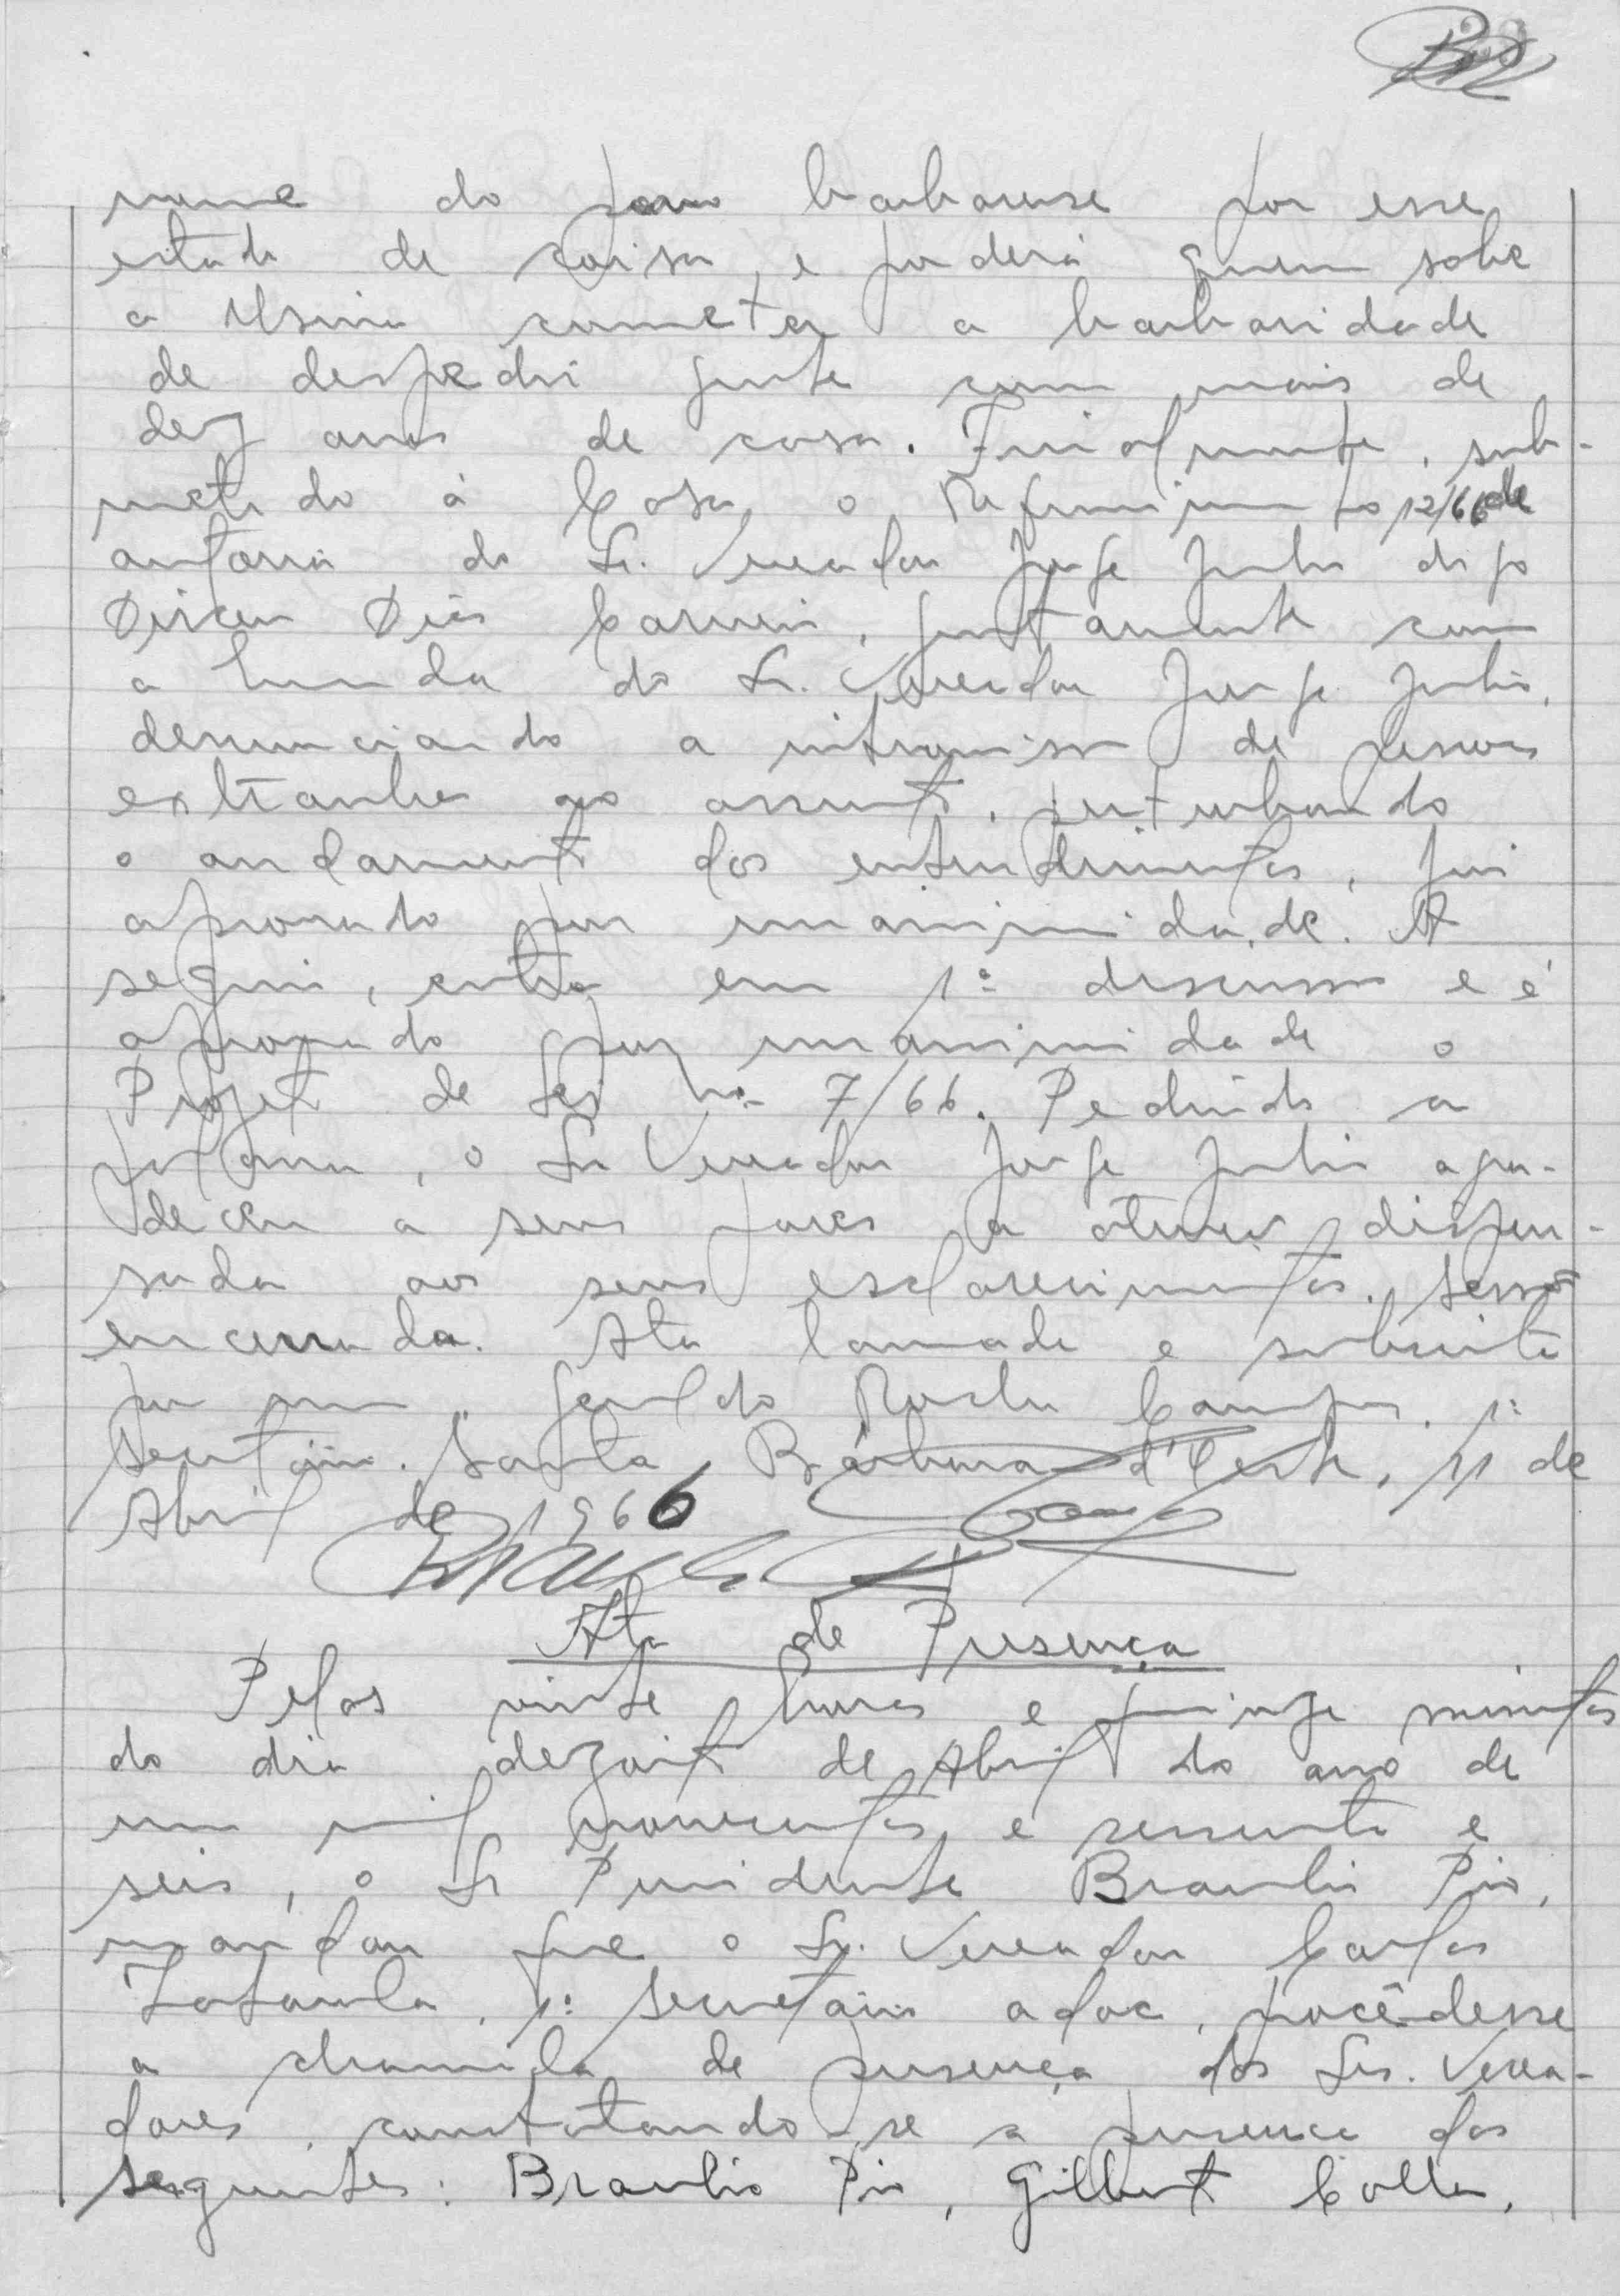 nome do povo barbarense por esse
estado de coisa, e poderá quem sabe
a Usina cometer a barbaridade
de despedir gente com mais de
dez anos de casa. Finalmente, sub-
metido à Casa o Requerimento 12/66 de
autoria do Sr. Vereador Jorge Julio digo
Dirceu Dias Carneiro, juntamente com
a emenda do Sr. Vereador Jorge Julio,
denunciando a intromissão de pessoas
extranhas ao assunto, perturbando
o andamento dos entendimentos, foi
aprovado por unanimidade. A
seguir, entra em 1ª discussão e é
aprovado por unanimidade o
Projeto de Lei nº 7/66. Pedindo a
palavra, o Sr Vereador Jorge Julio agra-
deceu a seus pares a atenção dispen-
sada aos seus esclarecimentos. Sessão
encerrada. Ata lavrada e subscrita
por mim, Geraldo Rocha Campos, 1º
Secretário. Santa Bárbara d'Oeste, 11 de
Abril de 1966
Ata de Presença
Pelas vinte horas e quinze minutos
do dia dezoito de Abril do ano de
um mil novecentos e sessenta e
seis, o Sr Presidente Braulio Pio,
mandou que o Sr. Vereador Carlos
1º Secretário adoc, procêdesse
a chamada de presença dos Srs. Verea-
dores, constatando-se a presença dos
seguintes: Braulio Pio, Gilberto Colla,